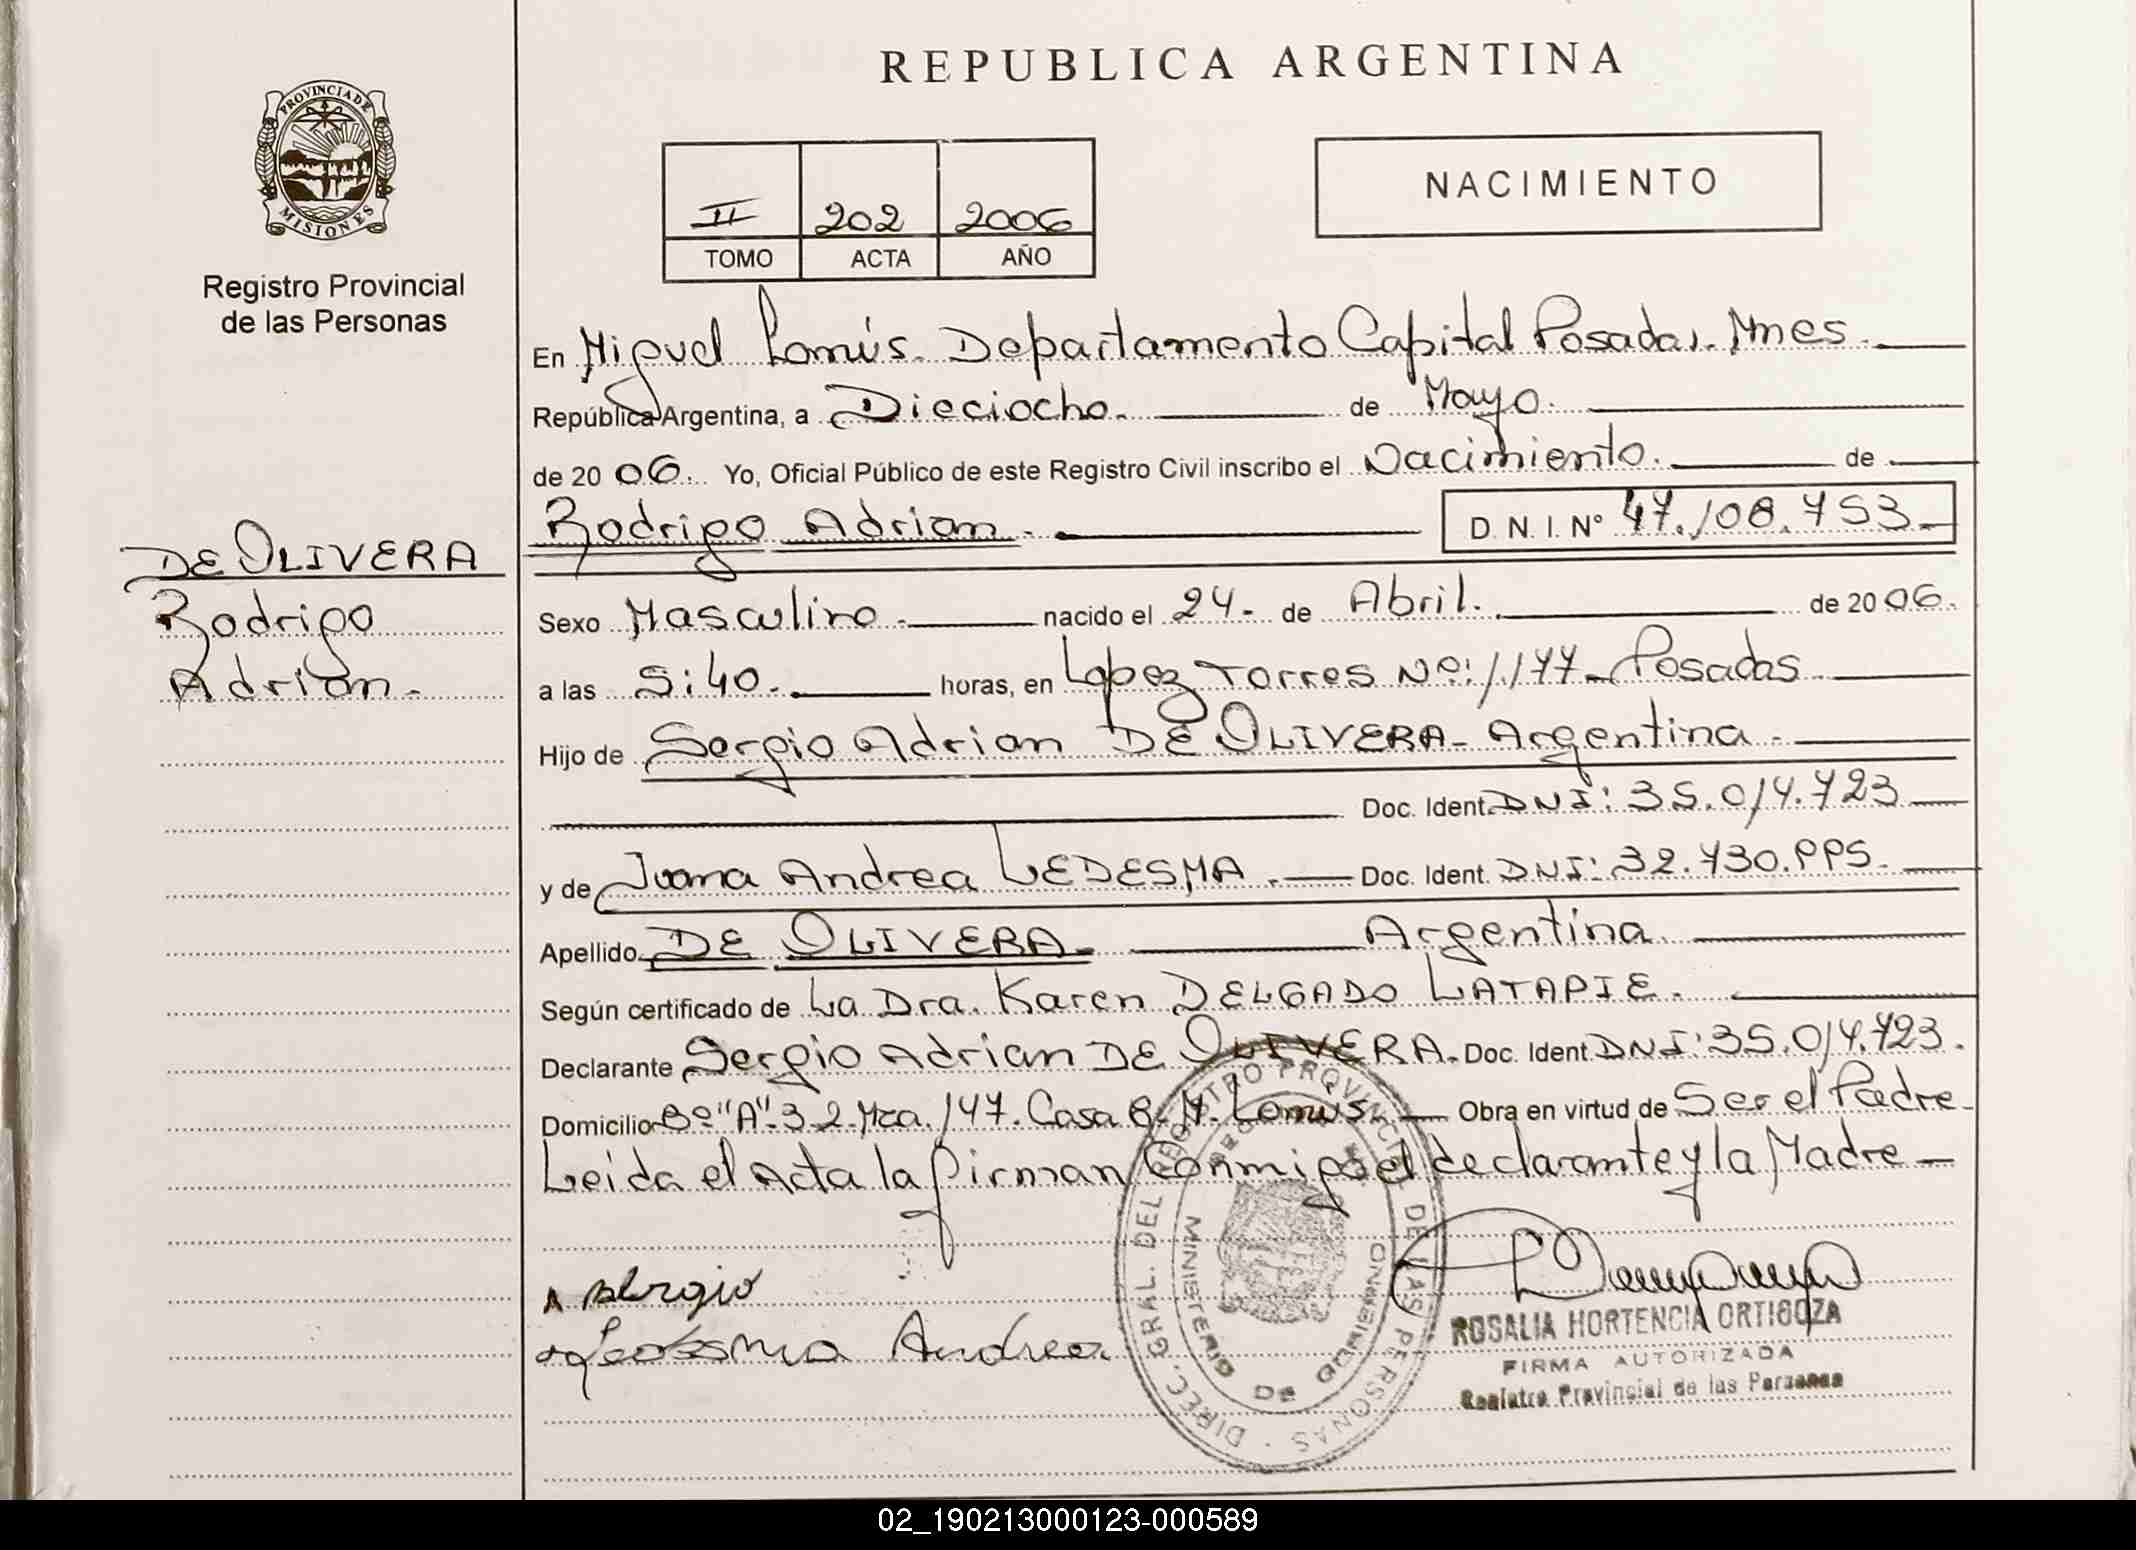 REPUBLICA ARGENTINA
PROVINCIA DE MISIONES
Registro Provincial
de las Personas
NACIMIENTO
II 202 2006
TOMO ACTA AÑO
En Miguel Lanús. Departamento Capital Posadas. Mnes.
República Argentina, a Dieciocho. de Mayo.
de 2006. Yo, Oficial Público de este Registro Civil inscribo el Nacimiento. de
Rodrigo Adrian. D. N. I. Nº 47.108.753.
DE OLIVERA
Rodrigo
Adrian.
Sexo Masculino. nacido el 24. de Abril. de 2006.
a las 5:40. horas, en Lopez Torres Nº: 1.177. Posadas
Hijo de Sergio Adrian DE OLIVERA. Argentina.
Doc. Ident. DNI: 35.014.723
y de Juana Andrea LEDESMA. Doc. Ident. DNI: 32.730.
Apellido DE OLIVERA. Argentina.
Según certificado de La Dra. Karen DELGADO LATAPIE.
Declarante Sergio Adrian DE OLIVERA. Doc. Ident. DNI: 35.014.723.
Domicilio Bº "A" 3.2. Mza. 147. Casa 8. M. Lanus. Obra en virtud de Ser el Padre
Leida el Acta la firman Conmigo el declarante y la Madre
sergio
Ledesma Andrea
DIREC. GRAL. DEL REGISTRO PROVINCIAL DE LAS PERSONAS
MINISTERIO DE GOBIERNO
ROSALIA HORTENCIA ORTIGOZA
FIRMA AUTORIZADA
Registro Provincial de las Personas
02_190213000123-000589